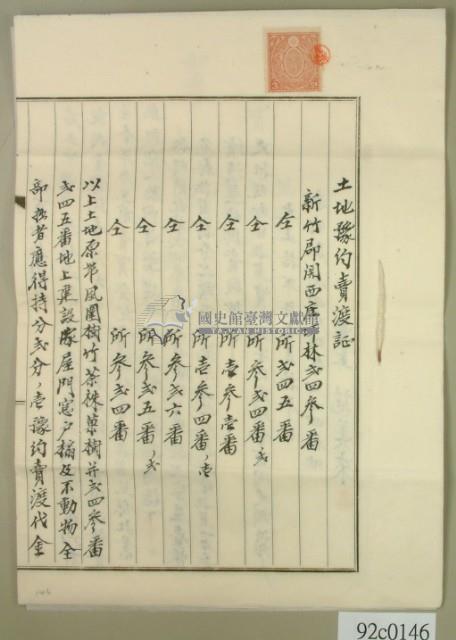 土地豫約賣渡証
新竹郡関西庄 林弍四参番
仝 所弍四五番
仝 所参弍四番ノ弍
仝 所壱参壱番
仝 所壱参四番ノ壱
仝 所参弍六番
仝 所参弍五番ノ弍
仝 所参弍四番
以上土地原帯風圍樹竹茶欉菓樹并弍四参番
弍四五番地上建設家屋門窓戸橺及不動物全
部拙者應得持分弍分ノ壱豫約賣渡代金
國史館臺灣文獻館
TAIWAN HISTORICA
92c0146